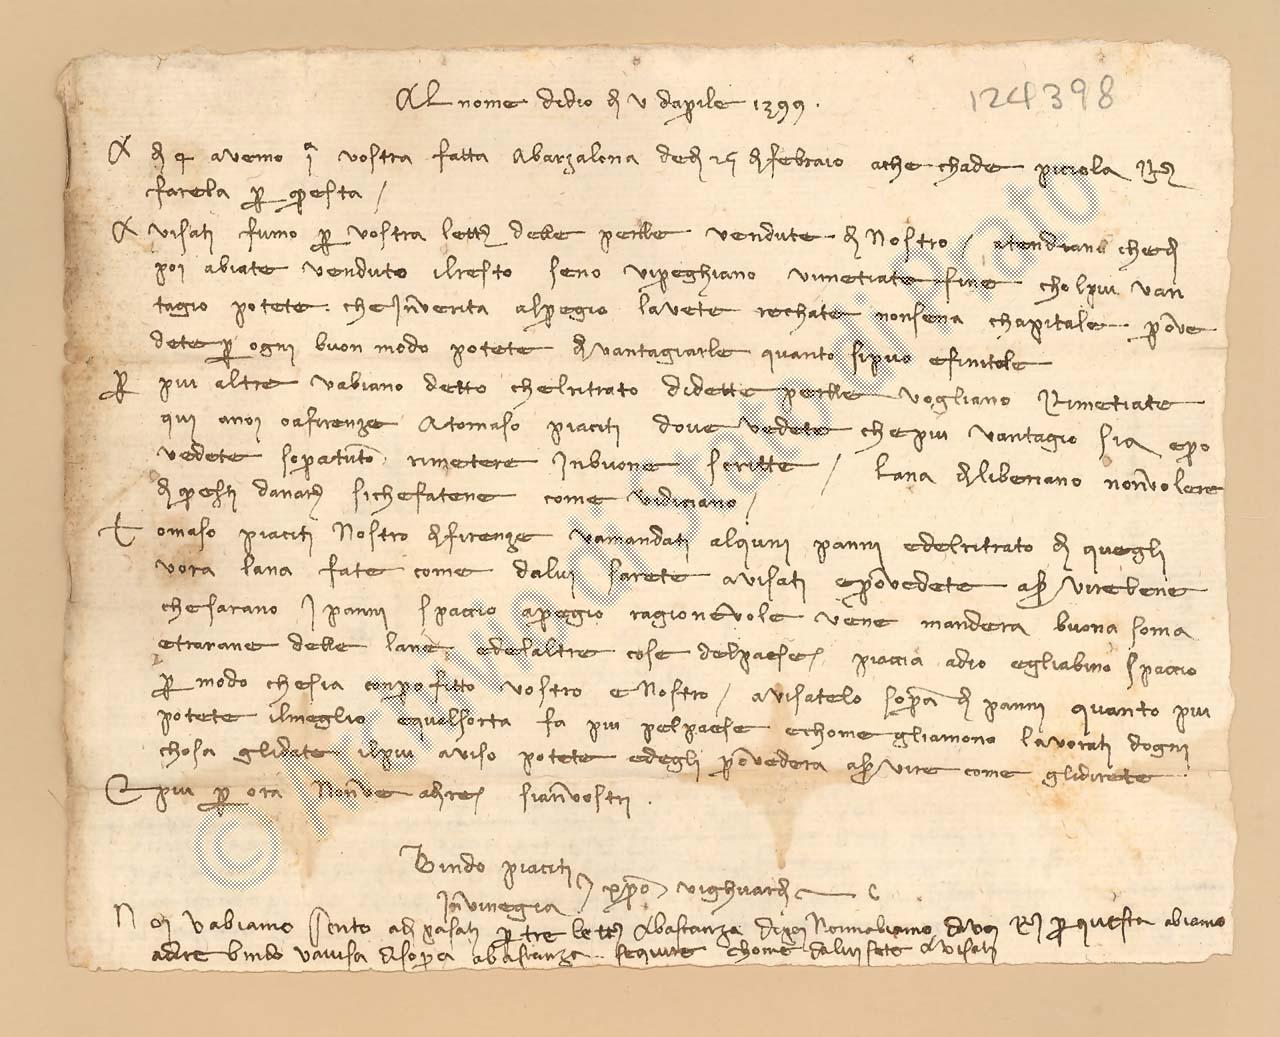 Al nome di dio di v d'aprile 1399. 124398
A di 4 avemo i vostra fatta a Barzalona de di 25 di febraio a che chade piciola
farela per questa /
Avisati fumo per vostra lettera delle perlle vendute di Nostro / atendiano che di
poi abiate venduto il resto se no vi peghiano vi metiate fine chol piu van
tagio potete che in verita al pregio l'avete rechate non se n'a chapitale prove
dete per ogni buon modo potete di vantagiarle quanto si puo e finitele
Per piu altre v'abiano detto che 'l ritrato di dette perlle vogliano rimetiate
qui a noi o a Firenze a Tomaso Piaciti dove vedete che piu vantagio sia e pro
vedete sopratuto rimetere in buone scritte / Lana diliberiano non volere
di questi danari si che fatene come vi diciano /
Tomaso Piaciti Nostro di Firenze v'a mandati alquni panni e del ritrato di quegli
vora lana fate come da lui sarete avisati e provedete a servire bene
che s'arano i panni spaccio a pregio ragionevole ve ne mandera buona soma
e trarane delle lane e de l'altre cose del paese / piaccia a dio egli abino spaccio
per modo che sia con profitto vostro e Nostro / avisatelo sopra di panni quanto piu
potete il meglio e qual sorta fa piu pel paese e chome gli amono lavorati d'ogni
chosa gli date il piu aviso potete ed egli provedera a servire come gli direte
E piu per ora Non v'e a dire / sian vostri.
Bindo Piaciti
in Vinegia
Noi v'abiamo scrito a di pasati per tre lettere a bastanza di poi Nonn abiamo da voi per questa abiamo
a dire Bindo v'avisa di sopra a bastanza seguire chome da lui sete avisati
© Archivio di Stato di Prato